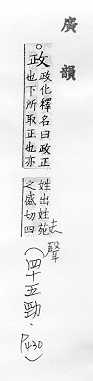 廣韻
。政
政化釋名曰政正
也下所取正也亦
姓出姓苑
之盛切四
去聲
(四十五勁.
P430)